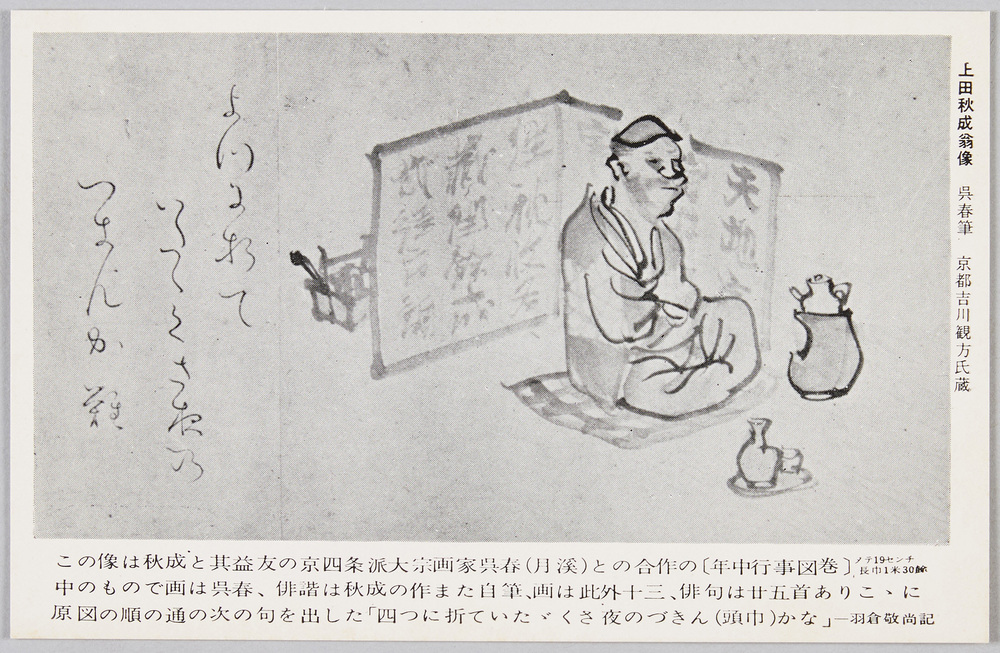 上田秋成翁像 呉春筆 京都吉川観方氏蔵
よつに折て
いたゝくさ夜乃
つきんか難
この像は秋成と其益友の京四条派大宗画家呉春(月溪)との合作の〔年中行事図巻〕タテ19センチ、長巾1米30餘
中のもので画は呉春、俳諧は秋成の作また自筆、画は此外十三、俳句は廿五首ありこゝに
原図の順の通の次の句を出した「四つに折ていたゞくさ夜のづきん(頭巾)かな」―羽倉敬尚記